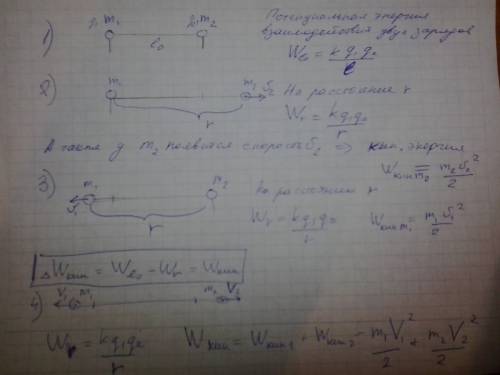 1) q₁ m₁ q₂ m₂
l₀
Потенциальная энергия
взаимодействия двух зарядов
W_l₀ = kq₁q₂/l
2) m₁ m₂ υ₂
r
На расстоянии r
W_r = kq₁q₂/r
А также у m₂ появится скорость υ₂ ⇒ кин. энергия
W_кин m₂ = m₂υ₂²/2
3) m₁ m₂
υ₁ r
На расстоянии r
W_r = kq₁q₂/r W_кин m₁ = m₁υ₁²/2
ΔW_кин = W_l₀ - W_r = W_кин
4) V₁ m₁ m₂ V₂
W_r = kq₁q₂/r W_кин = W_кин 1 + W_кин 2 = m₁V₁²/2 + m₂V₂²/2